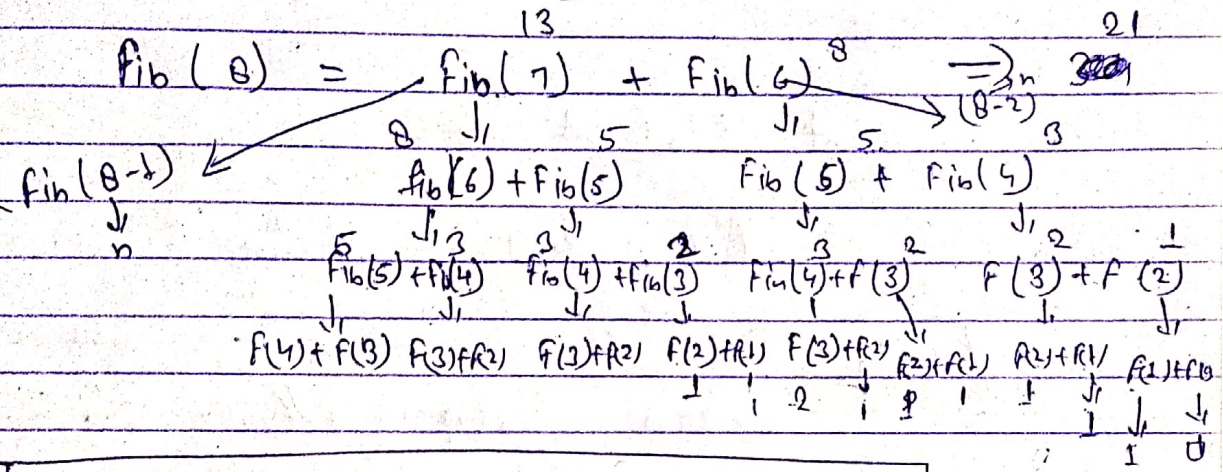 13 21
fib (8) = fib(7) + Fib(6) 8 ⇒
n (8-2)
8 5 5 3
fib(8-1) fib(6) + Fib(5) Fib(5) + Fib(4)
n 5 3 3 2 3 2 2 1
fib(5) + f(4) fib(4) + fib(3) Fib(4)+f(3) F(3) + F(2)
F(4) + F(3) F(3)+F(2) F(3)+F(2) F(2)+F(1) F(3)+F(2) F(2)+F(1) F(2)+F(1) F(1)+F(0)
1 1 2 1 1 1 1 1
1 0